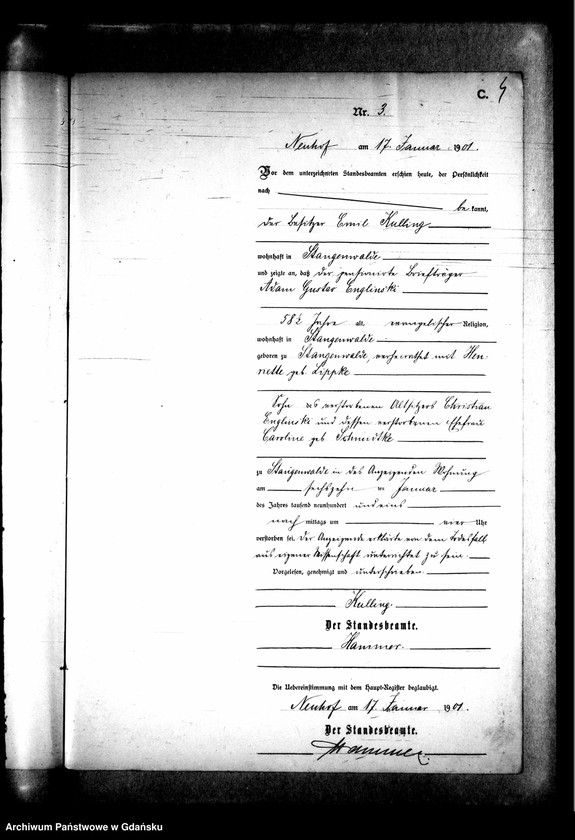 C. 4
Nr. 3.
Neuhof am 17 Januar 1901.
Vor dem unterzeichneten Standesbeamten erschien heute, der Persönlichkeit
nach
bekannt,
der Besitzer Emil Kulling
wohnhaft in Stangenwalde
und zeigte an, daß der pensionirte Briefträger
Adam Gustav Englinski
58½ Jahre alt, evangelischer Religion,
wohnhaft in Stangenwalde
geboren zu Stangenwalde, verheirathet mit Hen-
riette geb. Lippke
Sohn des verstorbenen Altsitzers Christian
Englinski und dessen verstorbenen Ehefrau
Caroline geb Schmidtke
zu Stangenwalde in des Anzeigenden Wohnung
am sechszehn ten Januar
des Jahres tausend neunhundert und eins
nach mittags um vier Uhr
verstorben sei. Der Anzeigende erklärte von dem Todesfall
aus eigener Wissenschaft unterrichtet zu sein.
Vorgelesen, genehmigt und unterschrieben.
Kulling.
Der Standesbeamte.
Hammer.
Die Uebereinstimmung mit dem Haupt-Register beglaubigt.
Neuhof am 17 Januar 1901.
Der Standesbeamte.
Hammer.
Archiwum Państwowe w Gdańsku